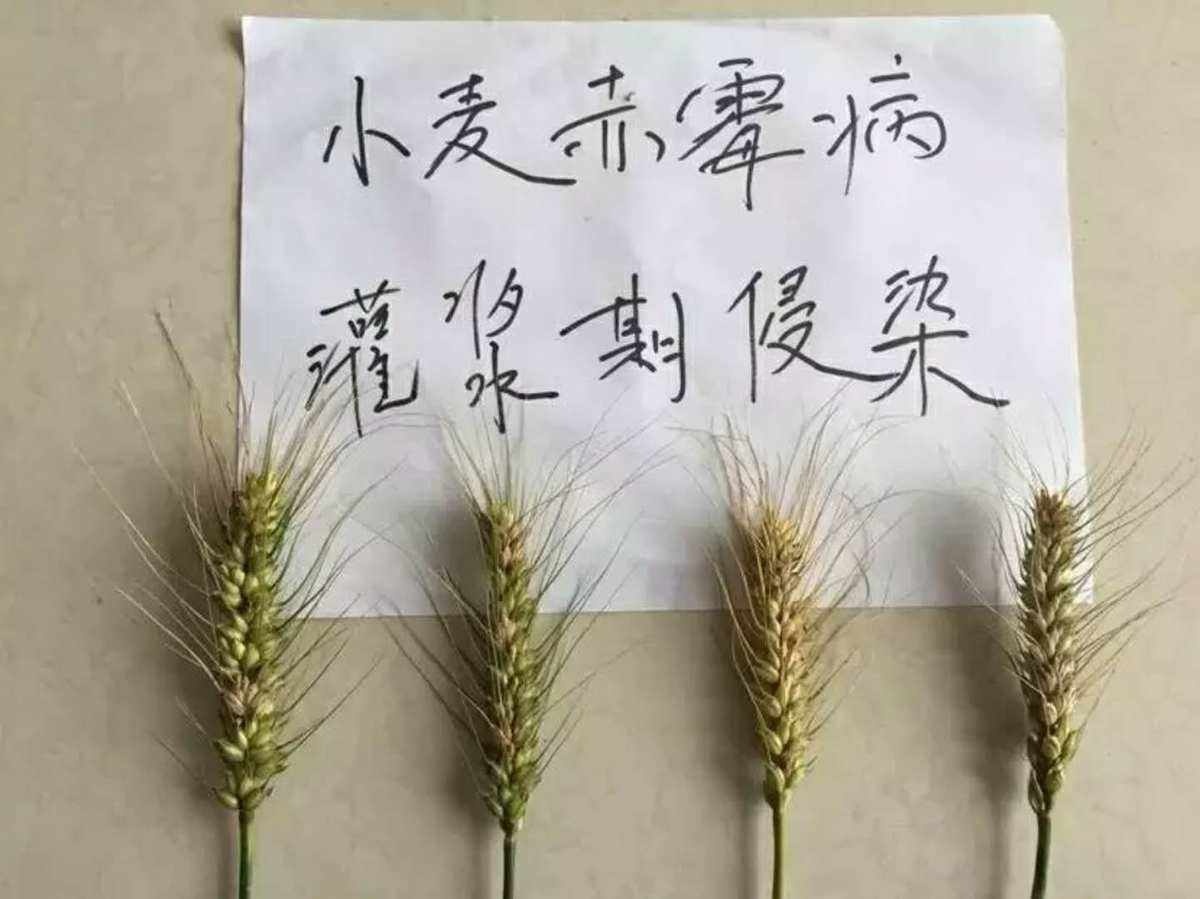 小麦赤霉病
灌浆期侵染